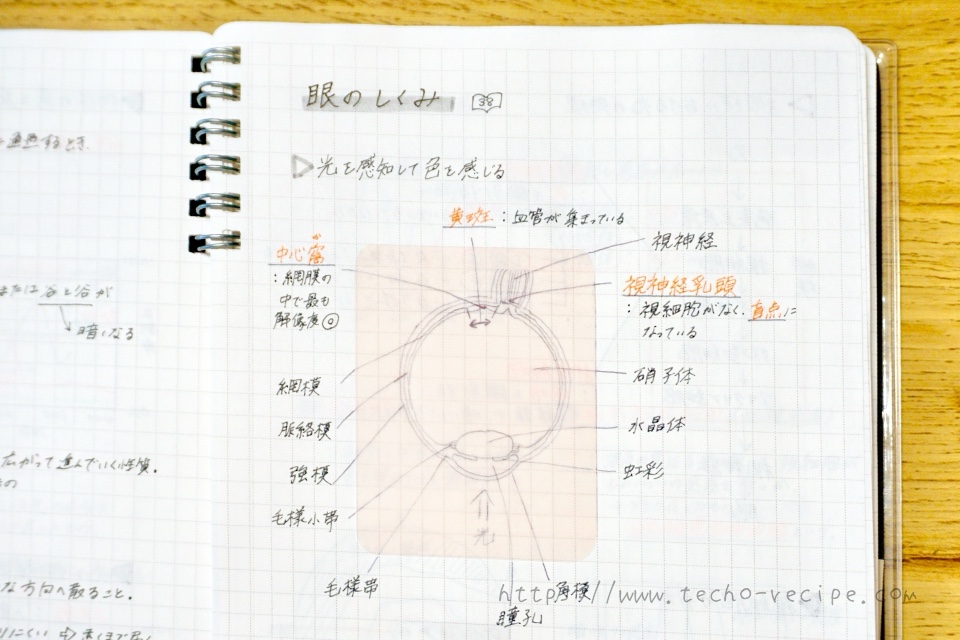 眼のしくみ
38
光を感知して色を感じる
黄斑:血管が集まっている
中心窩
:網膜の
中で最も
解像度◎
視神経
視神経乳頭
:視細胞がなく、盲点に
なっている
網模
硝子体
脈絡模
水晶体
強模
虹彩
毛様小帯
光
毛様帯
角模
瞳孔
通過するとき、
または谷と谷が
暗くなる
広がって進んでいく性質。
な方向へ散ること。
http://www.techo-recipe.com